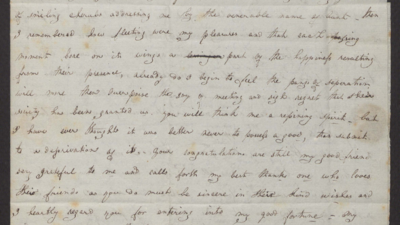 of smiling cherubs addressing me by the venerable name of aunt. then
I remembered how fleeting were my pleasures and that each passing
moment bore on its wings a part of the happiness resulting
from their presence, already do I begin to feel the pangs of separation
will more than overpower the joy of meeting and sigh regret that
has been granted us. you will think me a repining but
I have ever thought it was better never to possess a good, than submit
to a deprivation of it. Your congratulations are still my good friend
very grateful to me and calls forth my best thanks one who loves
their friends as you do must be sincere in their kind wishes and
I heartily regard you for entering into my good fortune — my